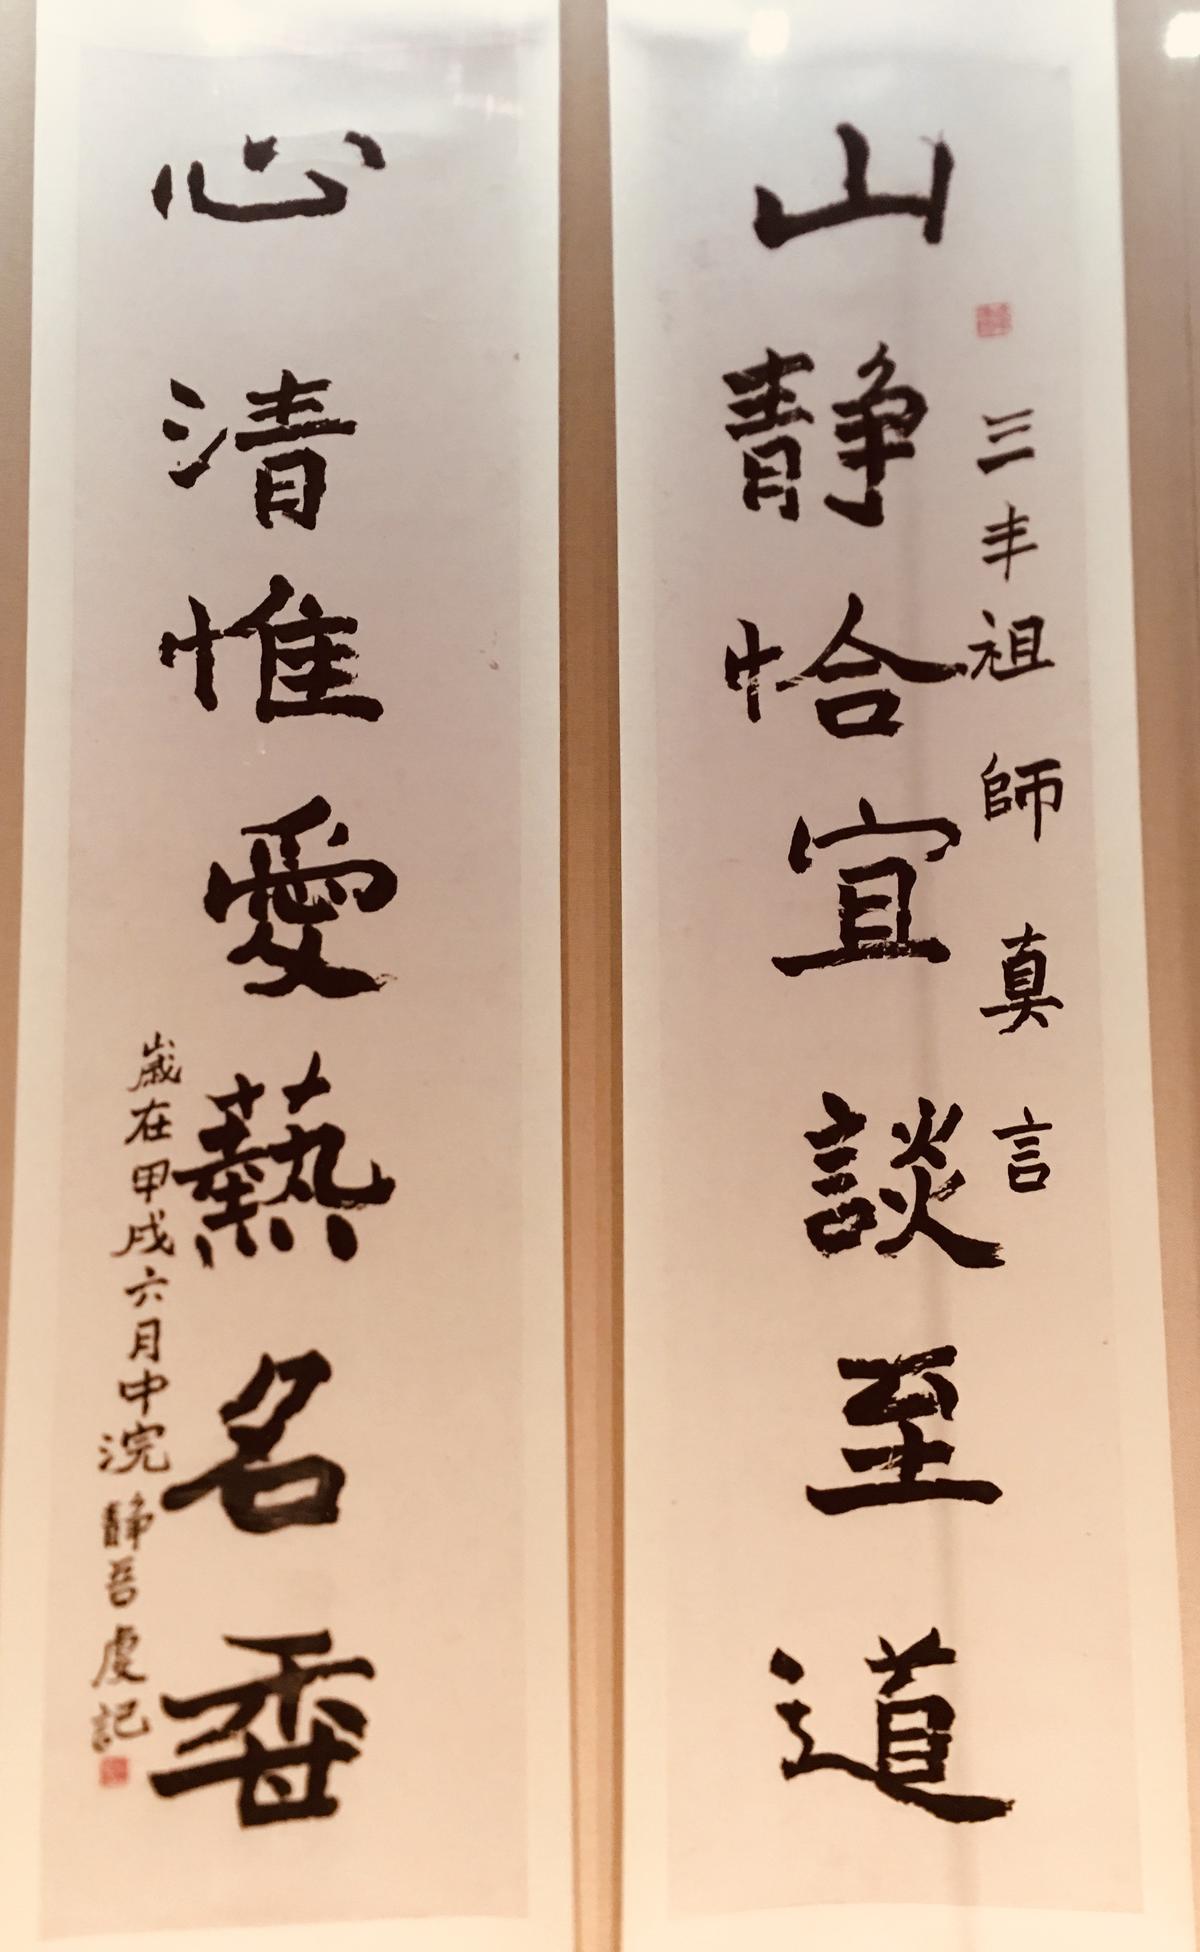 三丰祖師真言
山靜恰宜談至道
心清惟愛爇名香
歲在甲戌六月中浣靜吾虔記